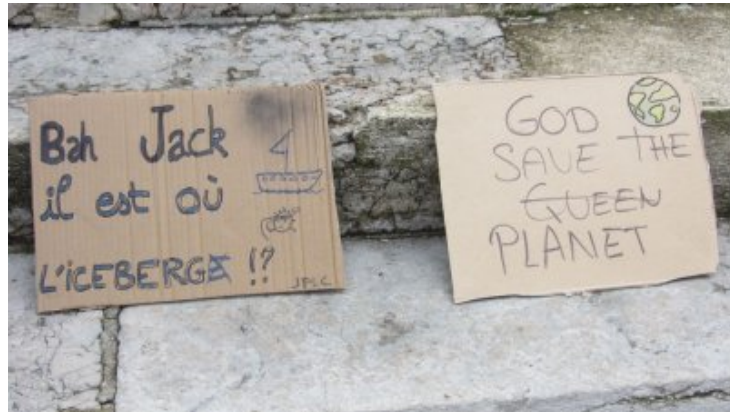 Bah Jack
il est où
L'ICEBERGE !?
JPLC
GOD
SAVE THE
QUEEN
PLANET